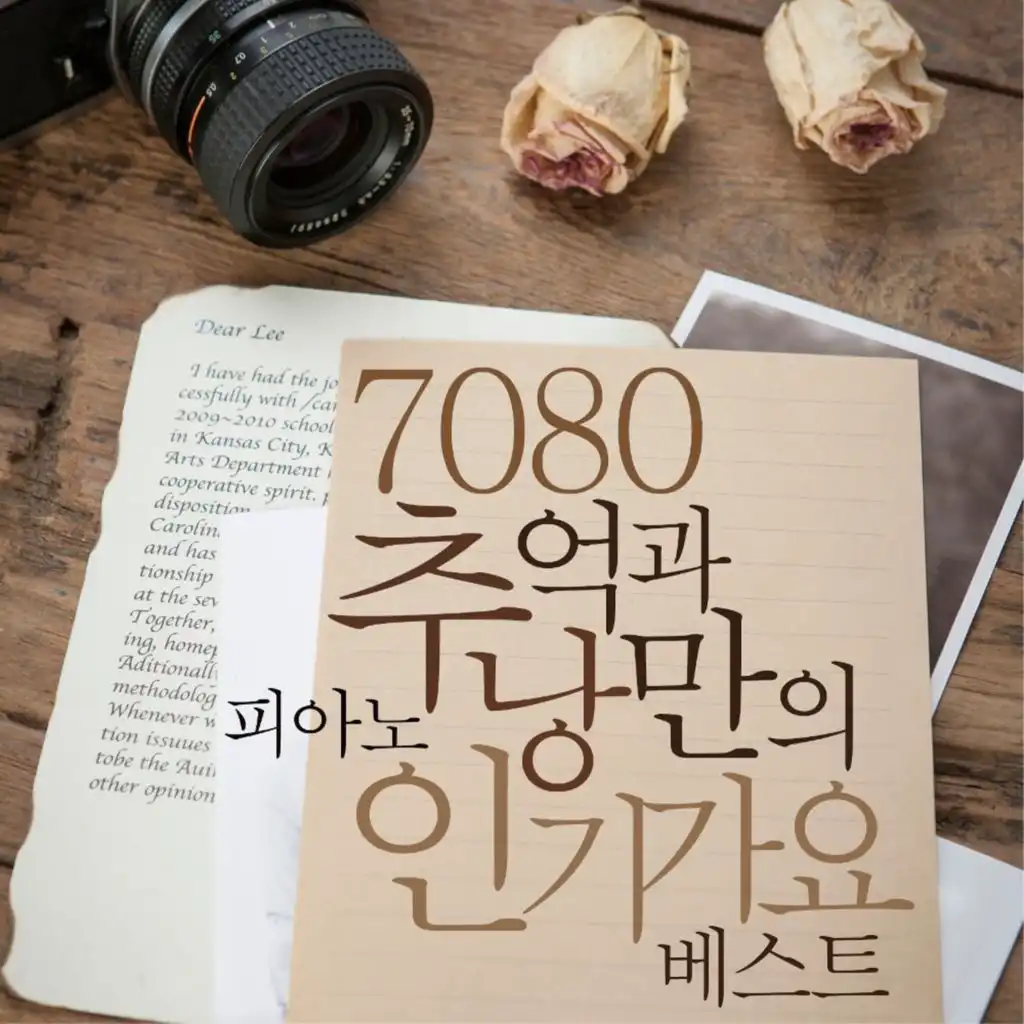 Dear Lee
I have had the jo
cessfully with /car
2009~2010 school
in Kansas City, K
Arts Department
cooperative spirit.
disposition
Carolin
and has
tionship
at the sev
Together,
ing, homep
Aditionall
methodolog
Whenever w
tion issuues
tobe the Aui
other opinion
7080
추억과
낭만의
피아노
인기가요
베스트